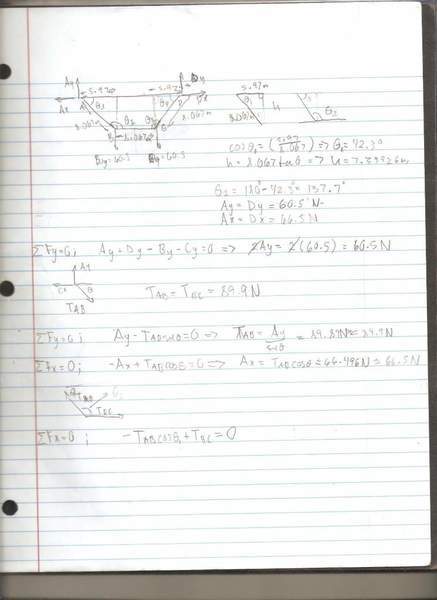 Ay
Dy
5.97m
5.97m
Ax
A
θ1
D
Dx
8.067m
8.067m
θ2
B
8.067m
By=60.5
By=60.5
5.97m
θ1
h
8.067m
θ2
cosθ1=(5.97/8.067)=>θ1=42.3°
h=8.067tanθ=>h=7.33926m
θ2=180°-42.3°=137.7°
Ay=Dy=60.5N
Ax=Dx=66.5N
ΣFy=0, Ay+Dy-By-Cy=0=> 2Ay=2(60.5)=60.5N
Ay
θ
TAB
TAB=TBC=89.9N
ΣFy=0; Ay-TABsinθ=0=> TAB=Ay/sinθ=89.89N=89.9N
ΣFx=0; -Ax+TABcosθ=0=> Ax=TABcosθ=66.496N=66.5N
TAB
TBC
ΣFx=0; -TABcosθ1+TBC=0